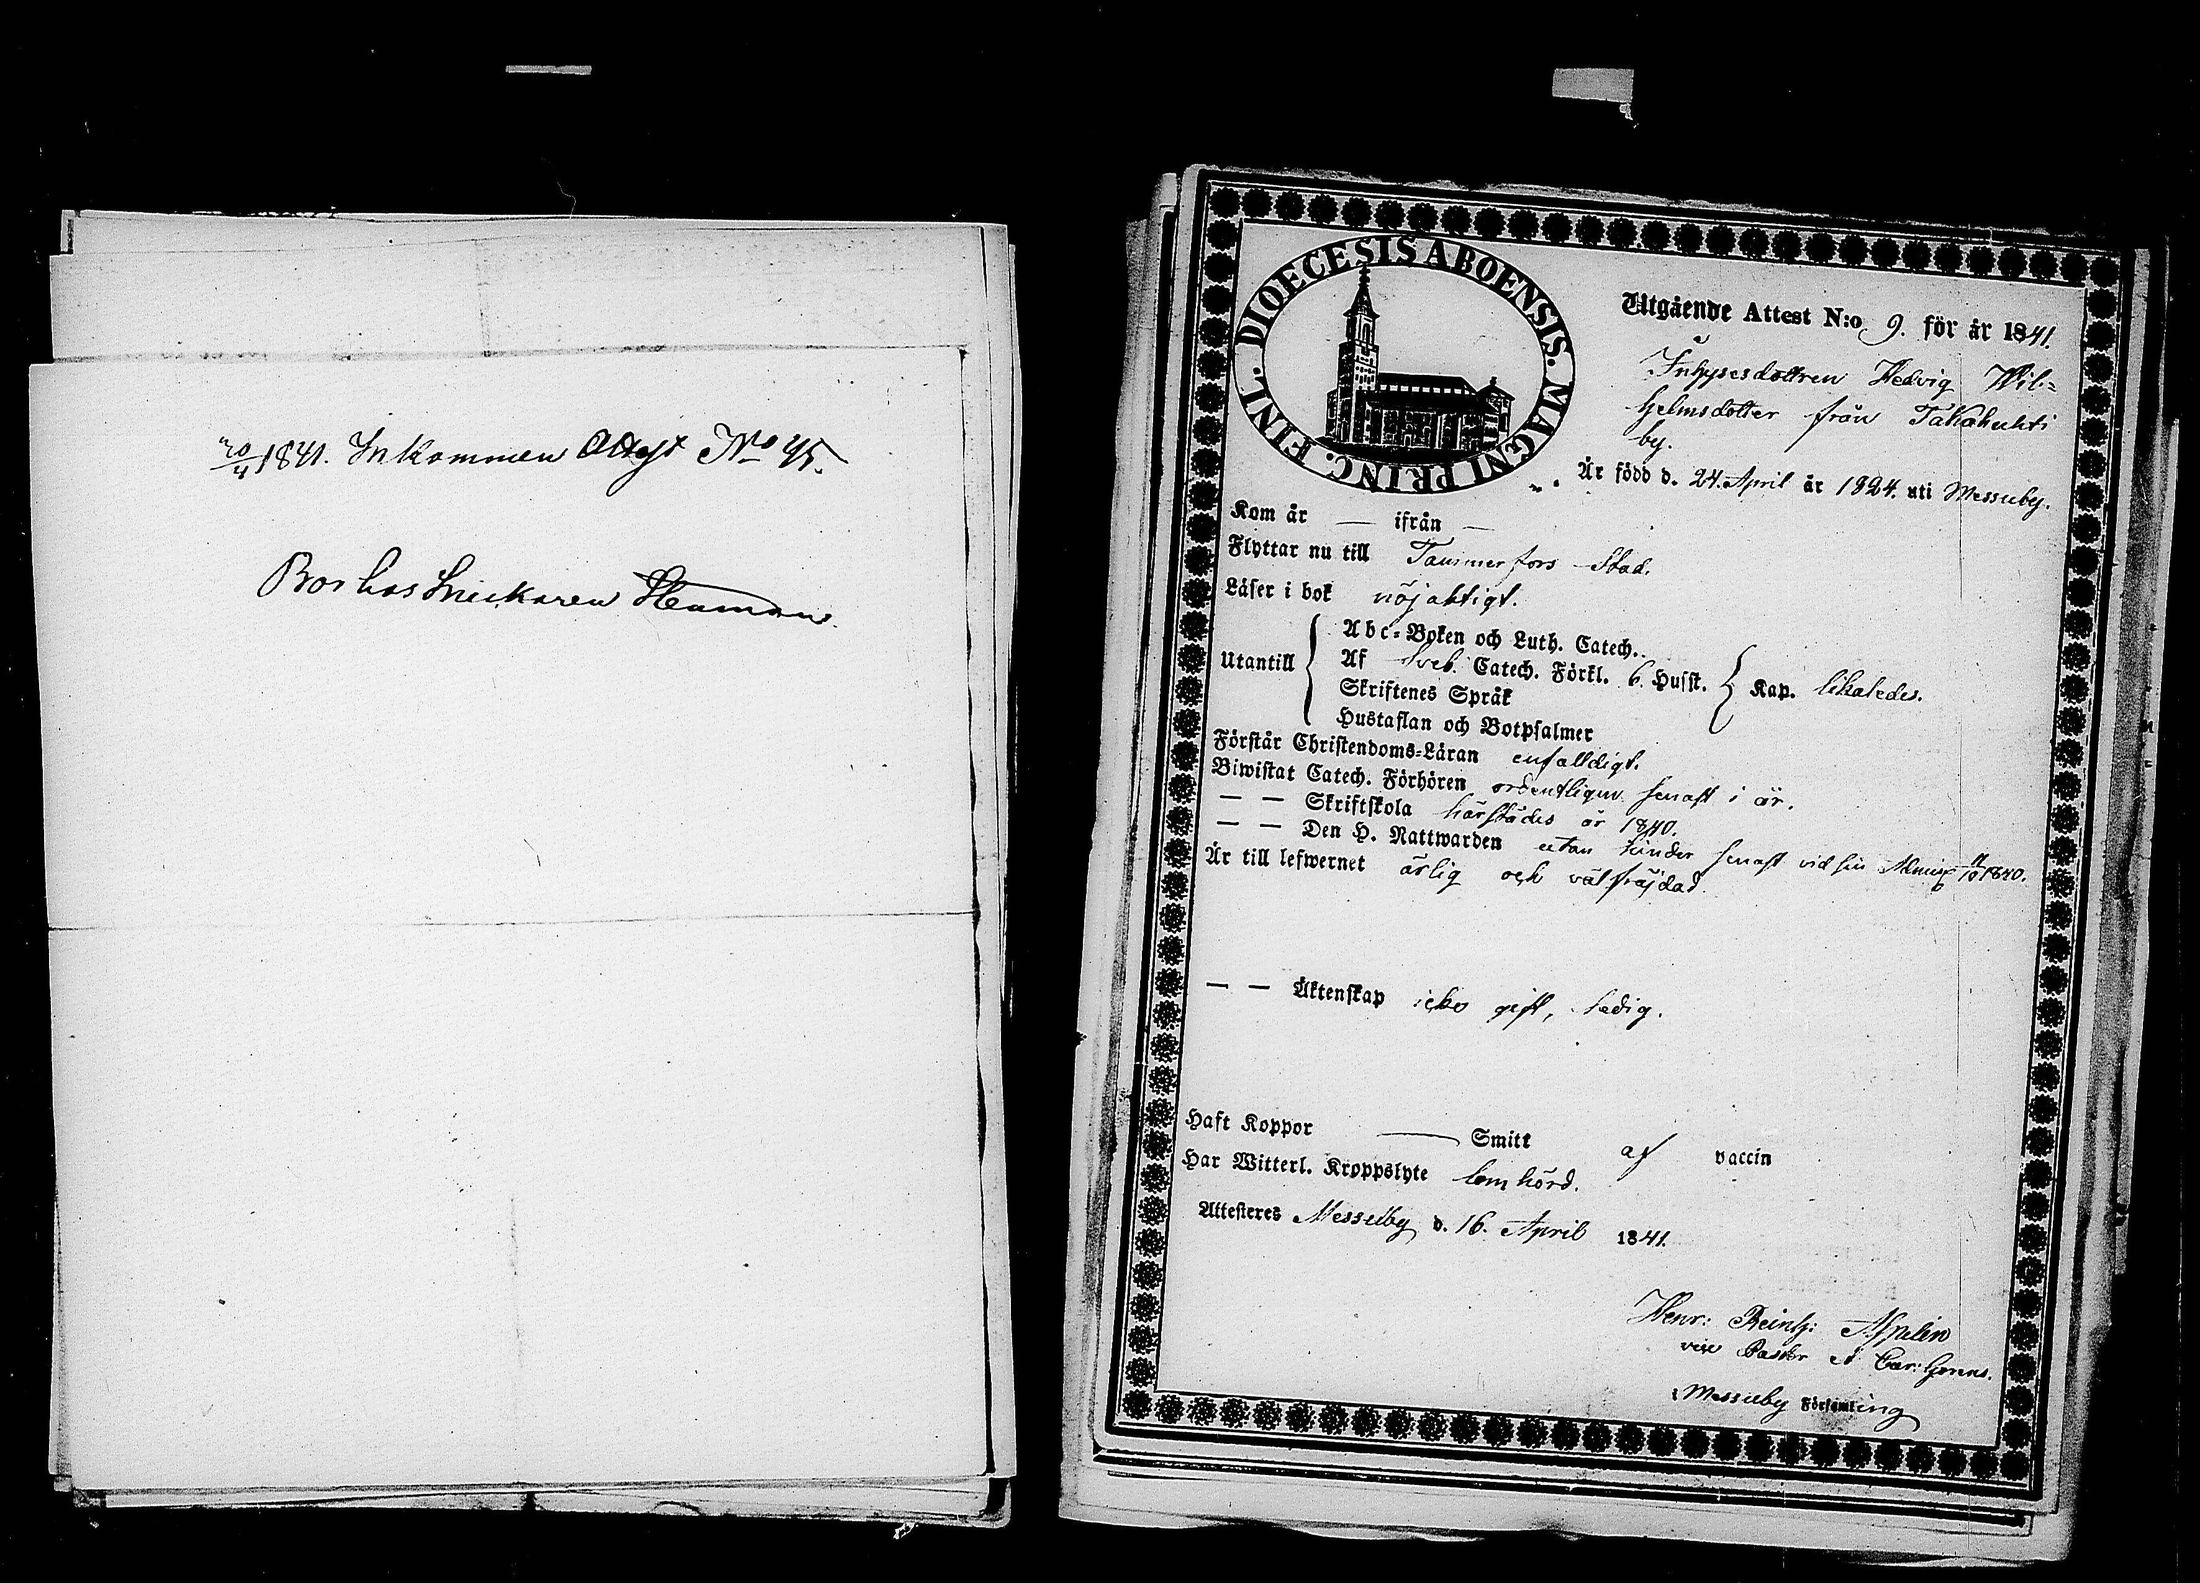 20/4 1841. Inkommen Attest No 45.
Bor hos Snickaren
DIOECESIS ABOENSIS. MAGNI PRINC. FINL.
Utgående Attest N:o 9. för år 1841.
Inhysesdottren Hedvig Wil=
helmsdotter från Takahuhti
by.
Är född d. 24. April år 1824. uti Messuby.
Kom år — ifrån —
Flyttar nu till Tammerfors Stad.
Läser i bok nöjaktigt.
Utantill
Abc-Boken och Luth. Catech.
Af Sveb. Catech. Förkl. 6. Husst. Kap. likaledes.
Skriftenes Språk
Hustaflan och Botpsalmer
Förstår Christendoms-Läran enfalldigt.
Biwistat Catech. Förhören ordentligen senast i år.
— — Skriftskola härstädes år 1840.
— — Den H. Nattwarden utan hinder senast vid sin 1840.
Är till lefwernet ärlig och välfräjdad.
— — Äktenskap icke gift, ledig.
Haft Koppor — Smitt af vaccin
Har Witterl. Kroppslyte lomhörd.
Attesteres Messuby d. 16. April 1841.
Henr: Reinh: Aspelin
vice Pastor
i Messuby Församling